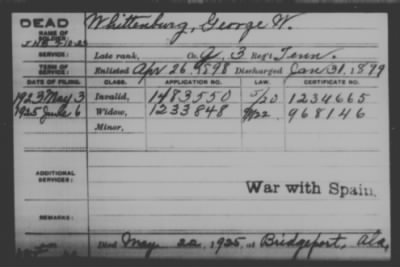 DEAD
NAME OF SOLDIER: Whittenburg, George W.
SERVICE: Late rank, Co. G, 3 Reg't Tenn.
TERM OF SERVICE: Enlisted Apr 26, 1898 Discharged Jan 31, 1899
DATE OF FILING. CLASS. APPLICATION NO. LAW. CERTIFICATE NO.
1923 May 3 Invalid, 1483550 5/20 1234665
1925 June 6 Widow, 1233848 968146
Minor,
ADDITIONAL SERVICES:
War with Spain.
REMARKS:
Died May 22, 1925, at Bridgeport, Ala,